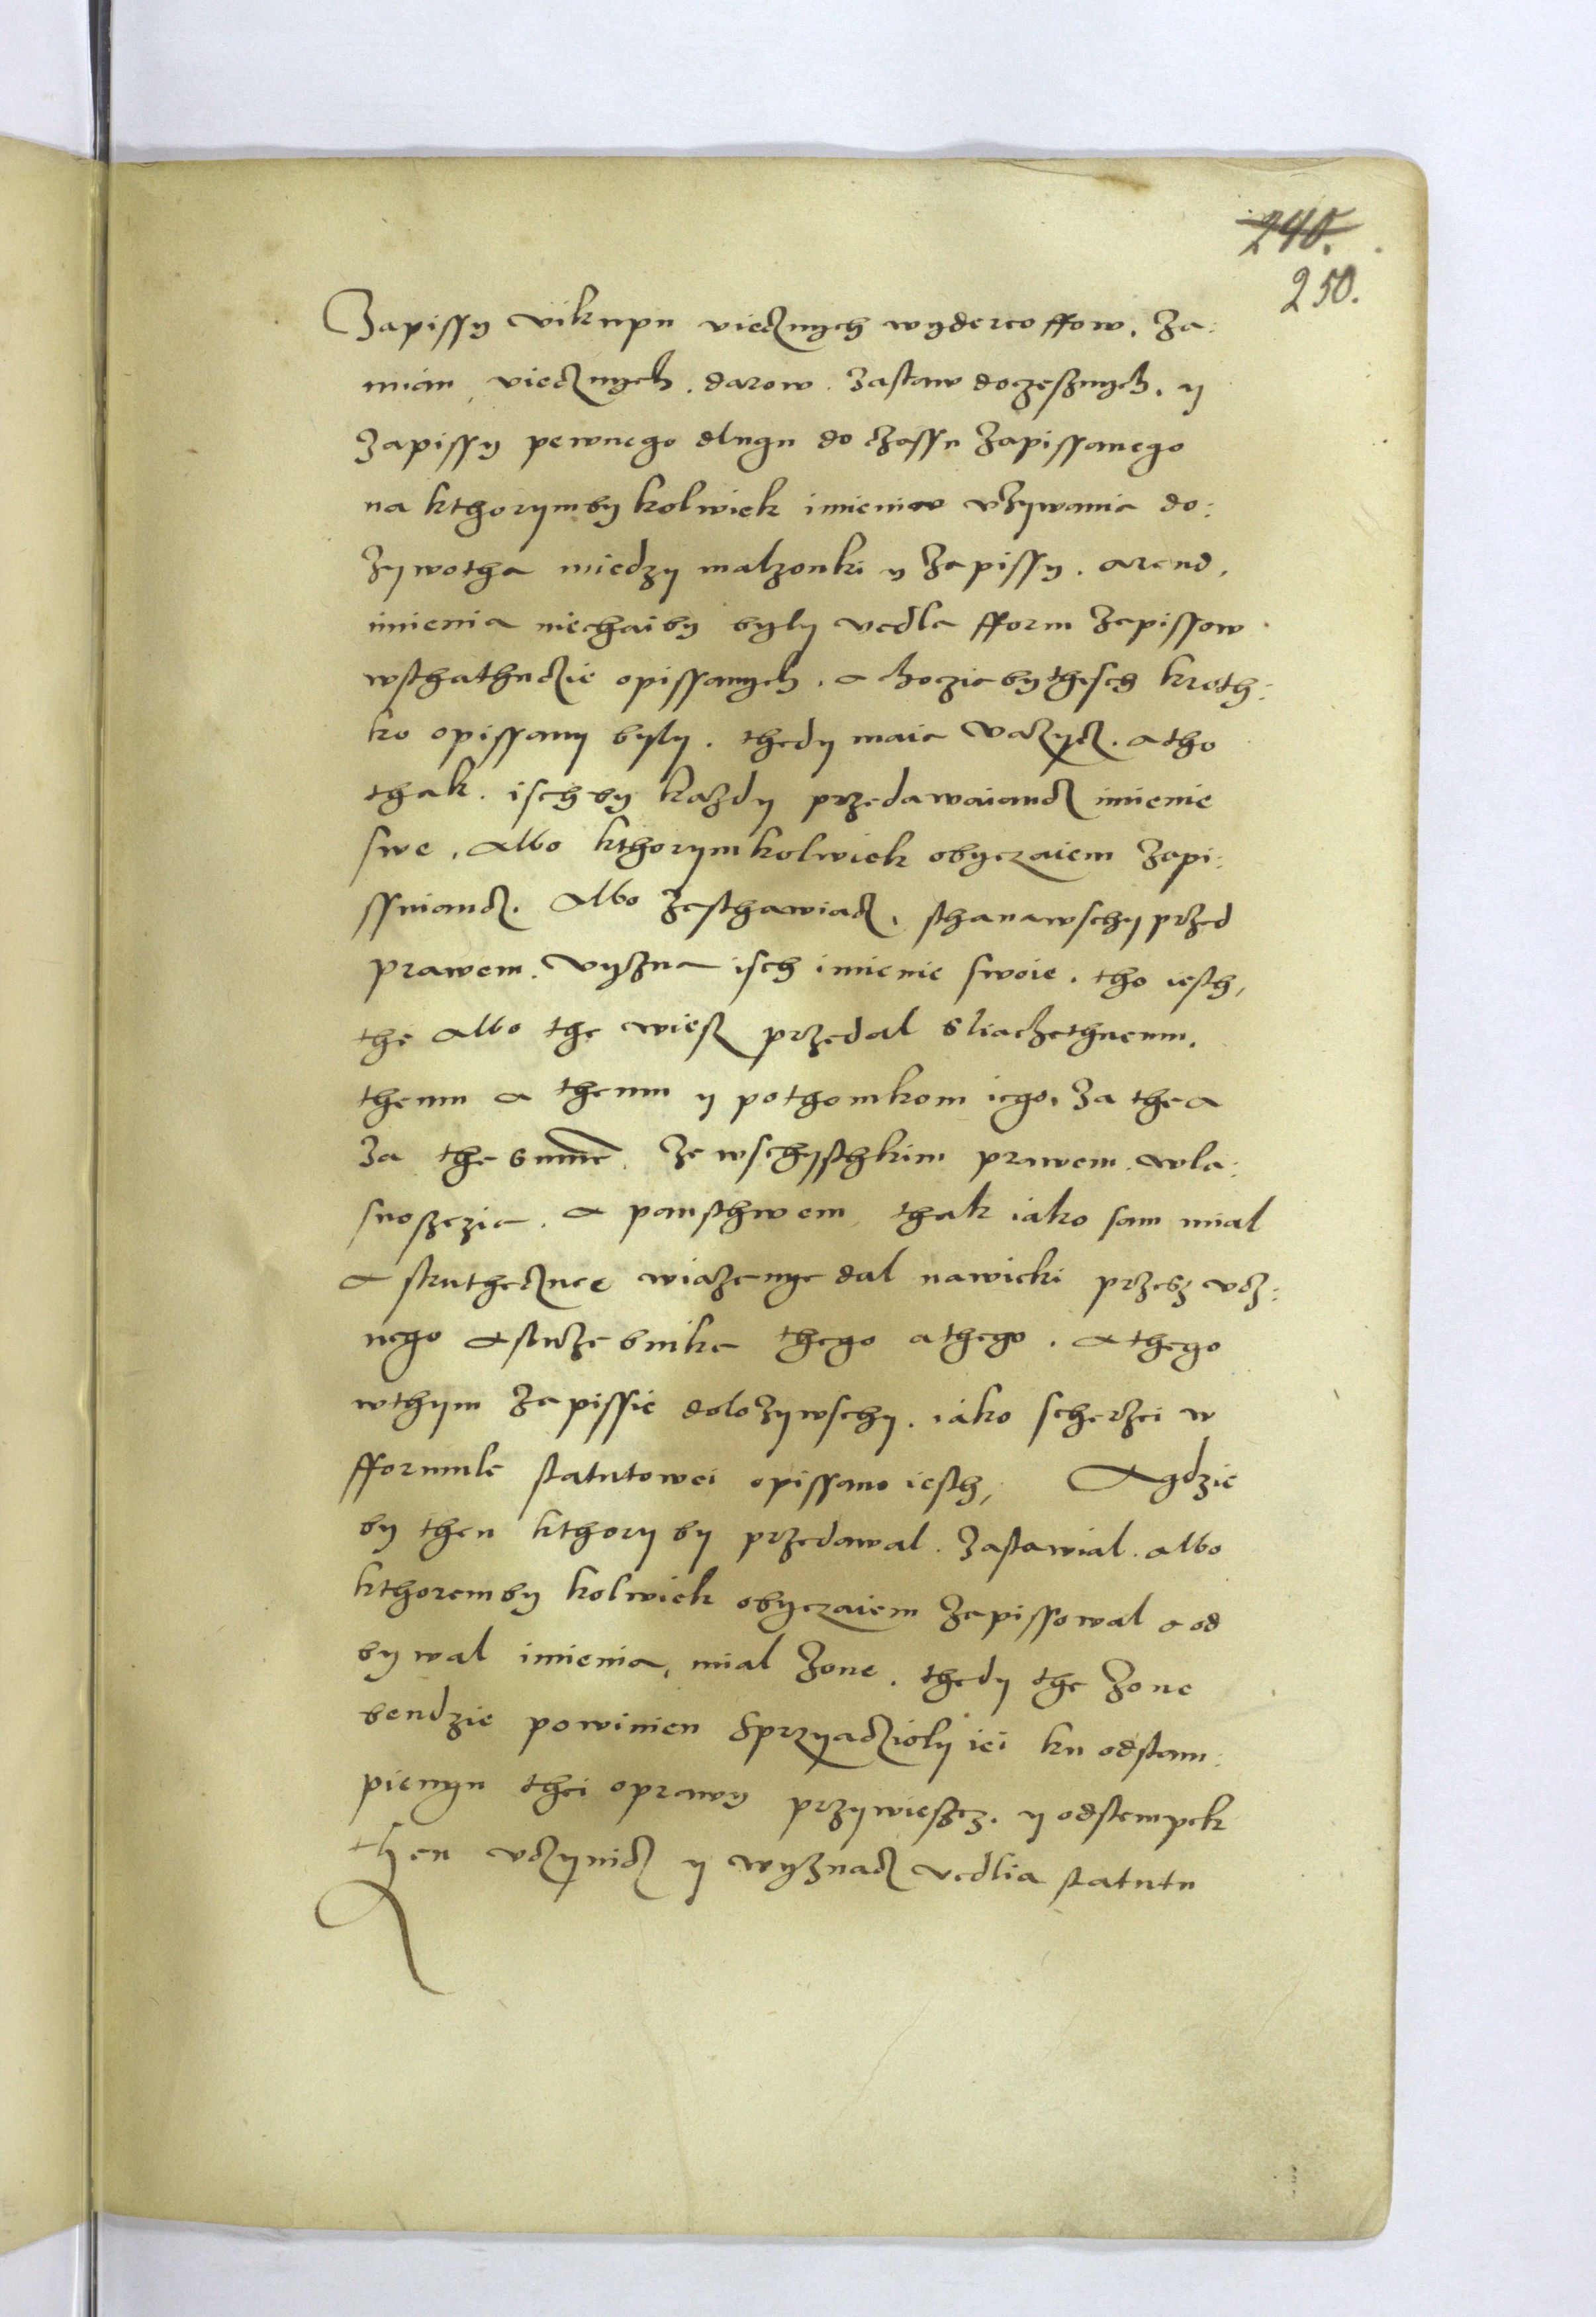 240.
250.
Zapissy vikupu viecznych wydercoffow. Za:
mian viecznych. darow. Zastaw doczesznych. y
Zapissy pewnego dlugu do czassu Zapissanego
na kthorymby kolwiek imieniw vżywania do:
żywotha miedzy malzonki y Zapissy. arend.
imienia niechaiby byly vedla fform Zapissow
wsthathuczie opissanych. a choziabythesch kroth:
ko opissany byly. thedy maia vażycz. atho
thak. ischby każdy przedawaiancz imienie
swe. Albo kthorymkolwiek obyczaiem Zapi:
ssuiancz. Albo Zasthawiacz. sthanawschy przed
prawem. vyzna isch imienie swoie. tho iesth,
the albo the wiesz przedal sliachethnemu.
themu a themu y pothomkom iego. Za the a
Za the summe. Ze wschysthkim prawem. wla:
snosczia. a pansthwem thak iako sam mial
a skutheczne wiazanye dal nawieki przesz vcz:
nego a sluzebnika thego athego. athego
wthym Zapissie dolożywschy. iako scherzei w
fformule statutowei opissano iesth, Agdzie
by then kthory by przedawal. Zastawial. albo
kthoremby kolwiek obyczaiem Zapissowal a od
bywal imienia, mial żone. thedy the żone
bendzie powinien sprzyaczioly iei ku odstam:
pienyu thei oprawy przywiescz. y odstempek
then vczynicz y wyznacz vedlia statutu